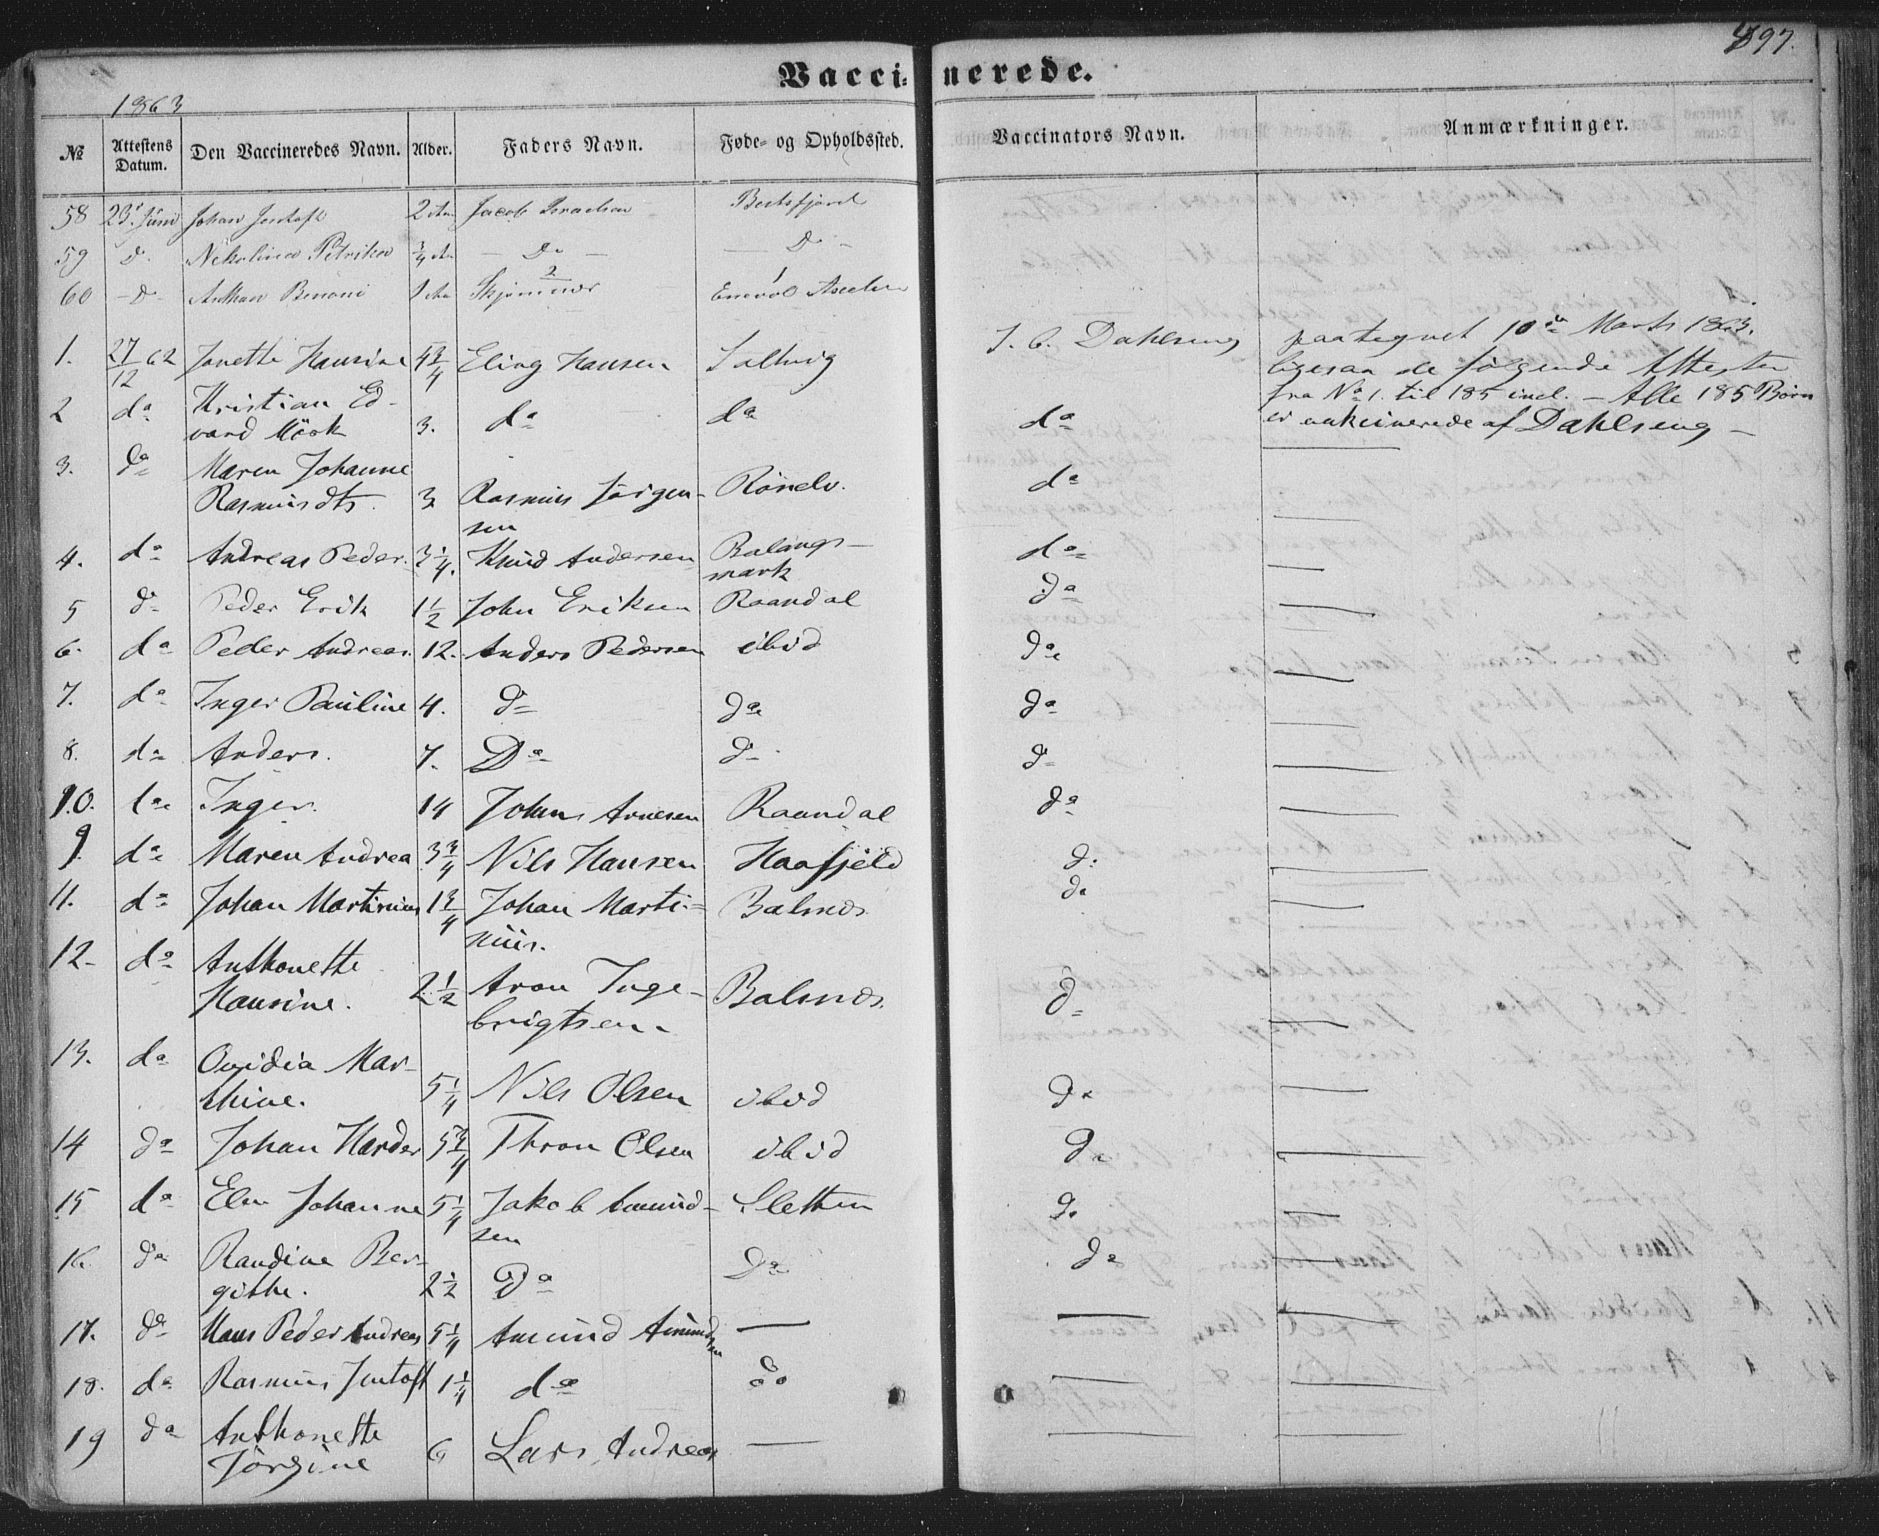 497.
Vaccinerede.
1863
№ Attestens Datum. Den Vaccineredes Navn. Alder. Faders Navn. Føde- og Opholdssted. Vaccinators Navn. Anmærkninger.
58 23. Juni Johan Jentoft 2 Jacob
59 D. Nikoline 3/4 — Do — — Do —
60 — D — Anthon Benoni 1
1. 27/12 62 Janette Hansine 4 3/4 Eling Hansen Saltvig J. C. Dahlseng paategnet 10de Marts 1863.
ligesaa de følgende Attester
fra No 1. til 185 incl. — Alle 185 Børn
2 da Kristian Ed-
vard Mörk 3. da da da er vakcinerede af Dahlseng —
3. da Maren Johanne
Rasmusdtr. 3 Rasmus Jörgen-
sen Rönelv. da —
4. da Andreas Peder. 3 1/4. Knud Andersen Balangs-
mark da —
5 da Peder Erik 1 1/2 John Eriksen Raandal da —
6. da Peder Andreas. 12. Anders Pedersen ibid da —
7. da Inger Pauline 4. da da da —
8. da Anders. 7. Da da da —
10. da Inger. 14 Johns Arnesen Raandal da —
9. da Maren Andrea 3 3/4 Nils Hansen Haafjeld d: —
11. da Johan Martinius 1 3/4 Johan Marti-
nius. Balsnes da —
12. da Anthonette
Hansine. 2 1/2 Aron Inge-
brigtsen. Balsnes d —
13. da Ovidia Mar-
thine. 5 1/4 Nils Olsen ibid da —
14 da Johan Harder 5 3/4 Thron Olsen ibid da —
15 da Elen Johanne 5 1/4 Jakob Amund-
sen Sletten da —
16. da Randine Ber-
githe. 2 1/2 da Da da —
17. da Hans Peder Andreas 5 1/4 Amund Amundsen — — —
18. da Rasmus Jentoft 1 1/4 da do — —
19 da Anthonette
Jörgine 6 Lars Andreas — — —